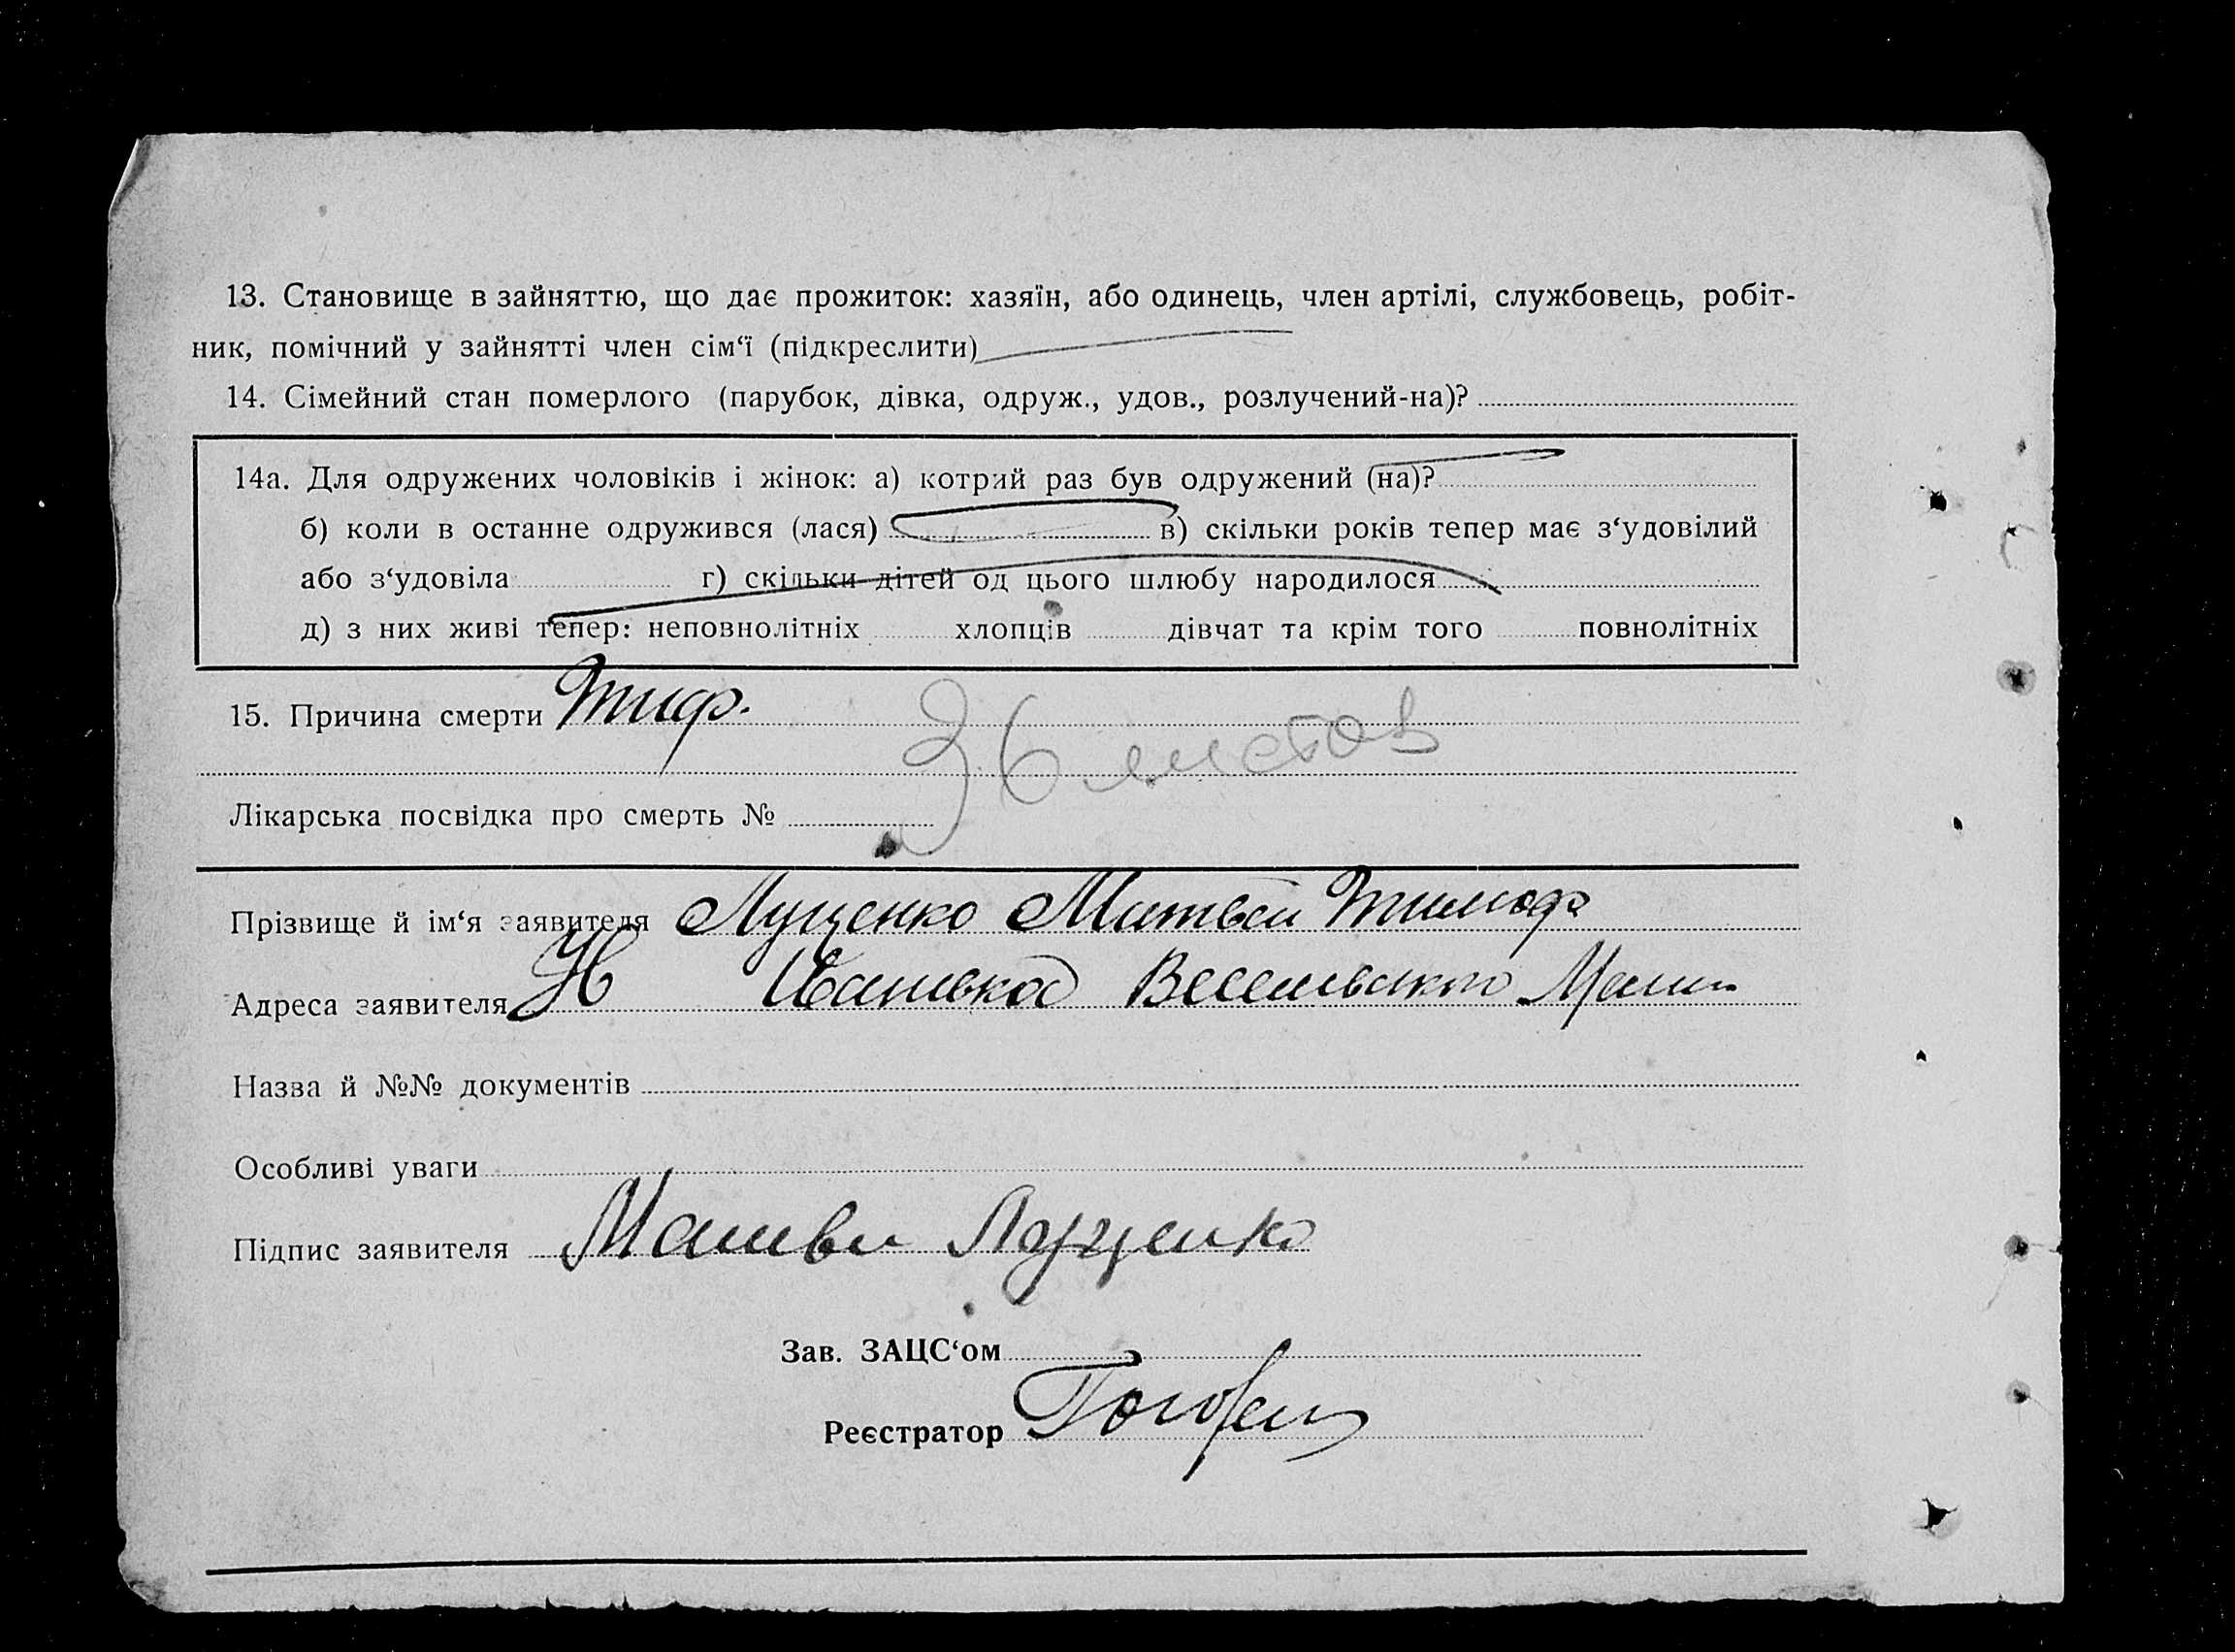 13. Становище в зайняттю, що дає прожиток: хазяїн, або одинець, член артілі, службовець, робіт-
ник, помічний у зайнятті член сім‘ї (підкреслити)
14. Сімейний стан померлого (парубок, дівка, одруж., удов., розлучений-на)?
14а. Для одружених чоловіків і жінок: а) котрий раз був одружений (на)?
б) коли в останне одружився (лася) в) скільки років тепер має з‘удовілий
або з‘удовіла г) скільки дітей од цього шлюбу народилося
д) з них живі тепер: неповнолітніх хлопців дівчат та крім того повнолітніх
15. Причина смерти Тиф.
36 листов
Лікарська посвідка про смерть №
Прізвище й ім‘я заявителя Луценко Матвей Тимоф
Адреса заявителя Н Ивановка
Назва й №№ документів
Особливі уваги
Підпис заявителя Матвей Луценко
Зав. ЗАЦС‘ом
Реєстратор